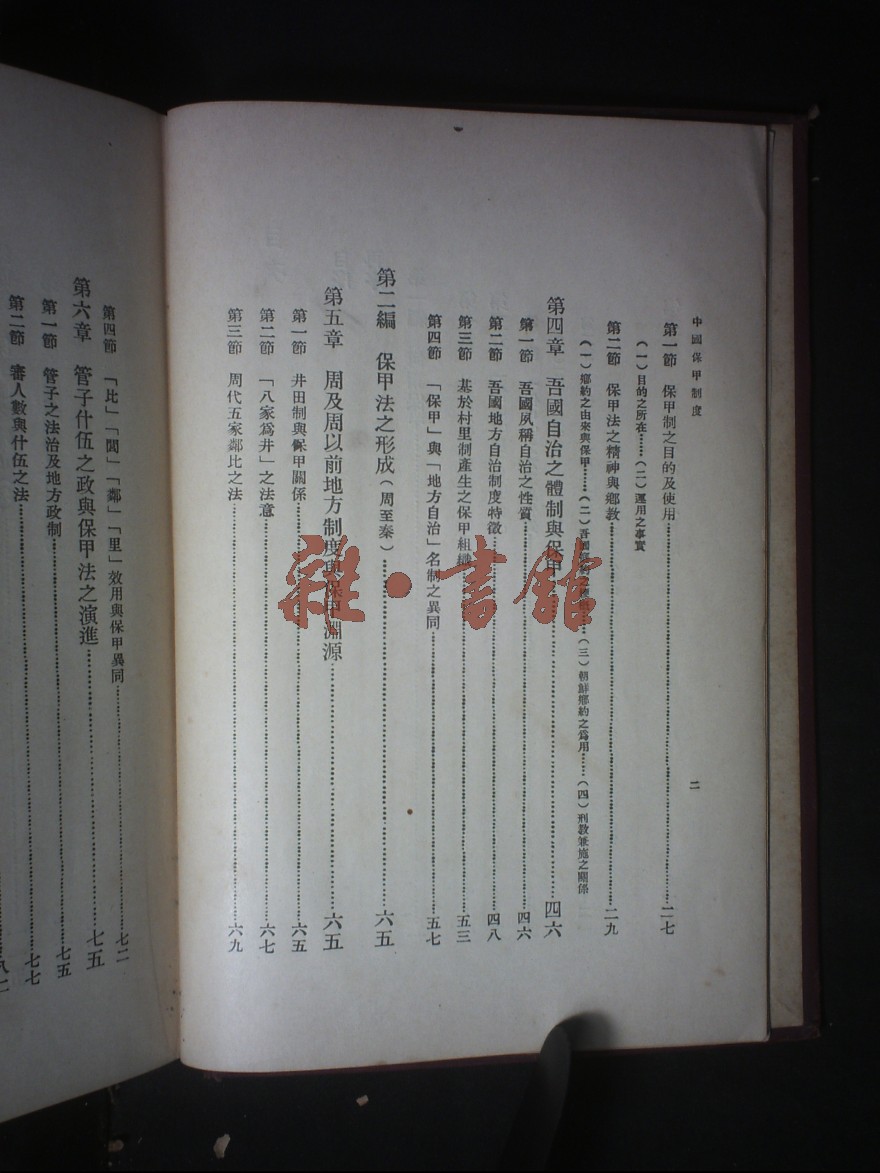 中國保甲制度
二
第一節 保甲制之目的及使用……二七
(一)目的之所在……(二)運用之事實
第二節 保甲法之精神與鄉教……二九
(一)鄉約之由來與保甲……(二)吾國鄉約之……(三)朝鮮鄉約之爲用……(四)刑教兼施之關係
第四章 吾國自治之體制與保甲……四六
第一節 吾國夙稱自治之性質……四六
第二節 吾國地方自治制度特徵……四八
第三節 基於村里制產生之保甲組織……五三
第四節 「保甲」與「地方自治」名制之異同……五七
第二編 保甲法之形成(周至秦)……六五
第五章 周及周以前地方制度與保甲淵源……六五
第一節 井田制與保甲關係……六五
第二節 「八家爲井」之法意……六七
第三節 周代五家鄰比之法……六九
第四節 「比」「閭」「鄰」「里」效用與保甲異同……七二
第六章 管子什伍之政與保甲法之演進……七五
第一節 管子之法治及地方政制……七五
第二節 審人數與什伍之法……七七
雜·書館